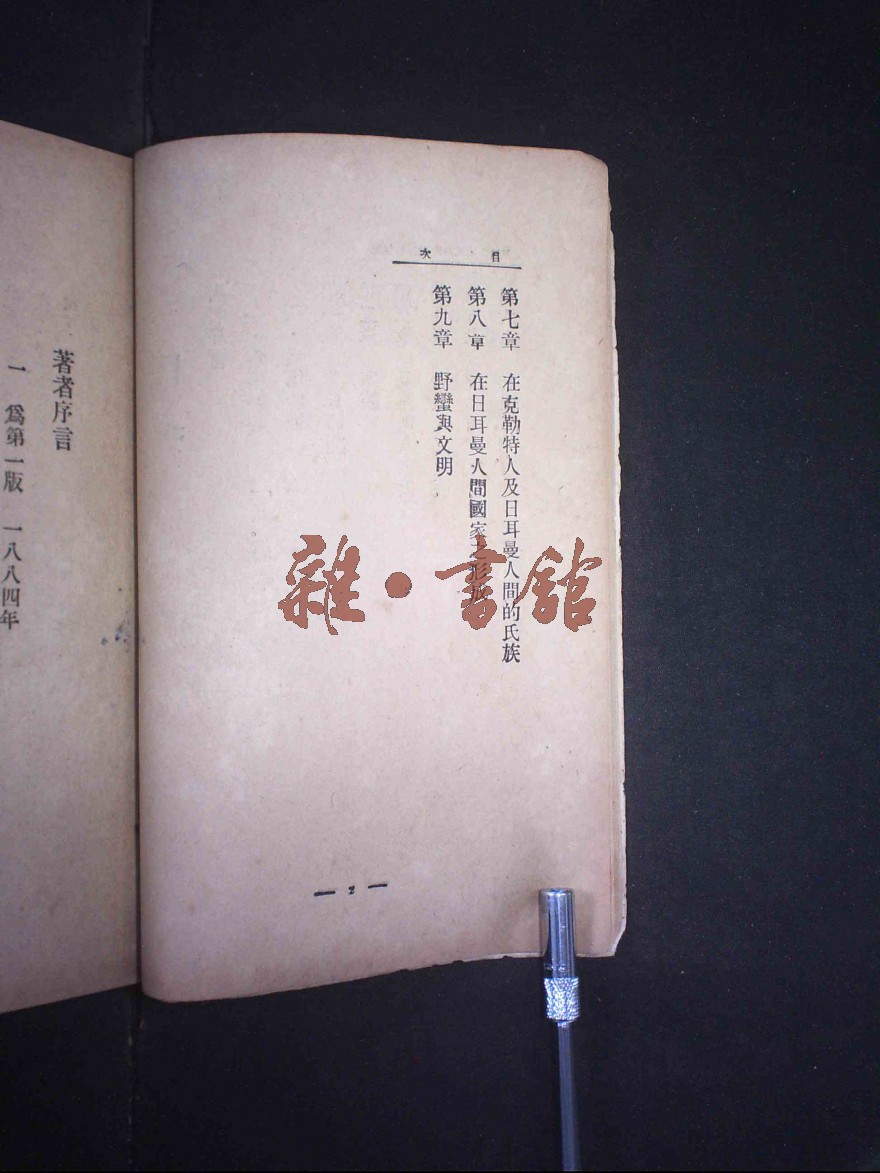 目次
第七章 在克勒特人及日耳曼人間的氏族
第八章 在日耳曼人間國家之形成
第九章 野蠻與文明
— 2 —
著者序言
一 爲第一版 一八八四年
雜·書館